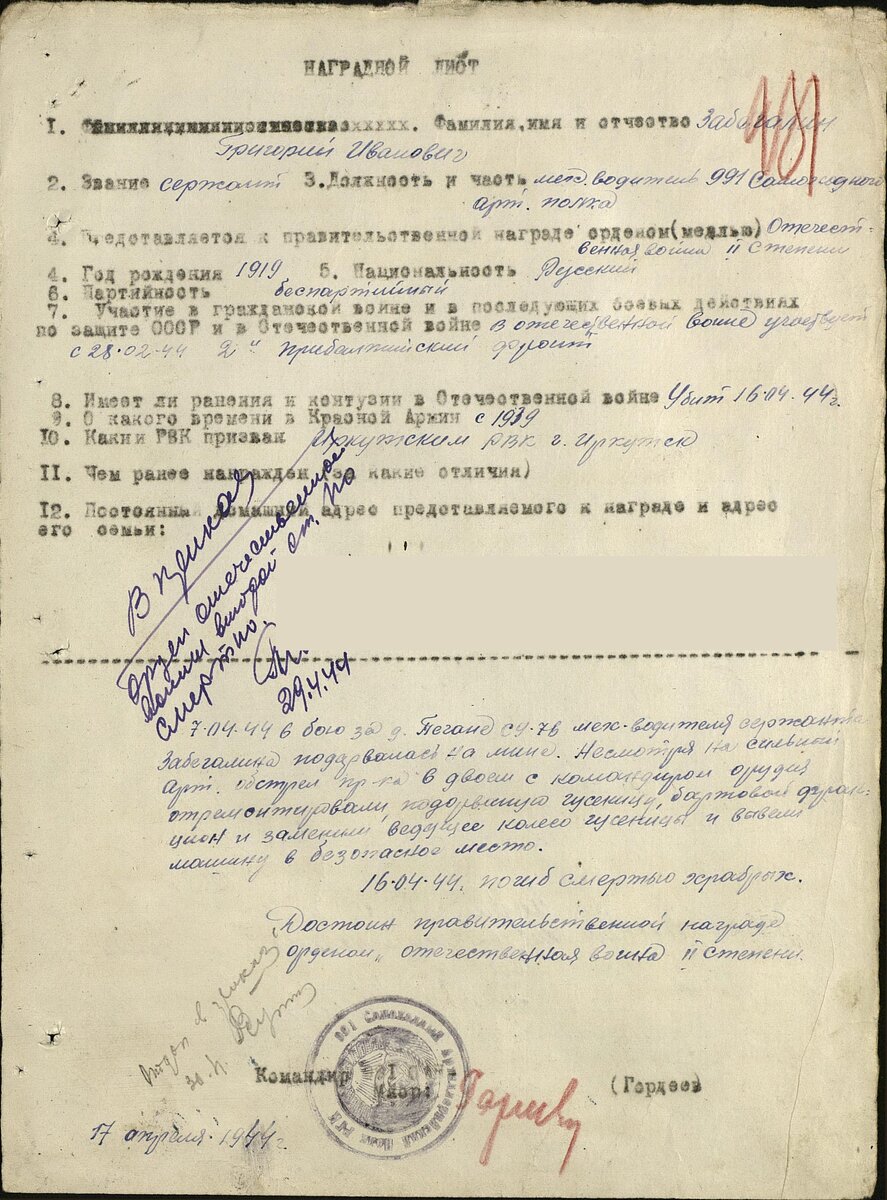 НАГРАДНОЙ ЛИСТ
I. Фамилия, имя и отчество Забегалин
Григорий Иванович
2. Звание сержант 3. Должность и часть мех. водитель 991 Самоходного
арт. полка
4. Представляется к правительственной награде орденом (медлью) Отечест-
венная война II Степени
4. Год рождения 1919 5. Национальность Русский
6. Партийность беспартийный
7. Участие в гражданской войне и в последующих боевых действиях
по защите СССР и в Отечественной войне в отечественной войне участвует
с 28.02.44 2й прибалтийский фронт
8. Имеет ли ранения и контузии в Отечественной войне Убит 16.04.44 г.
9. С какого времени в Красной Армии с 1939
10. Каким РВК призван Иркутским РВК г. Иркутск
II. Чем ранее награжден (за какие отличия)
12. Постоянный домашний адрес представляемого к награде и адрес
его семьи:
В приказ
орден отечественной
войны второй ст. по
смертно.
29.4.44
7.04.44 в бою за д. СУ-76 мех-водителя сержанта
Забегалина подорвалась на мине. Несмотря на сильный
арт. обстрел пр-ка в двоем с командиром орудия
отремонтировали подорванную гусеницу, бортовой фрик-
цион и заменили ведущее колесо гусеницы и вывели
машину в безопасное место.
16.04.44. погиб смертью храбрых.
Достоин правительственной награде
орденом „отечественная война II Степени.
в приказ
991 Самоходный Артиллерийский Полк РГК
Командир 991 САП
Майор: (Гордеев)
17 апреля 1944 г.